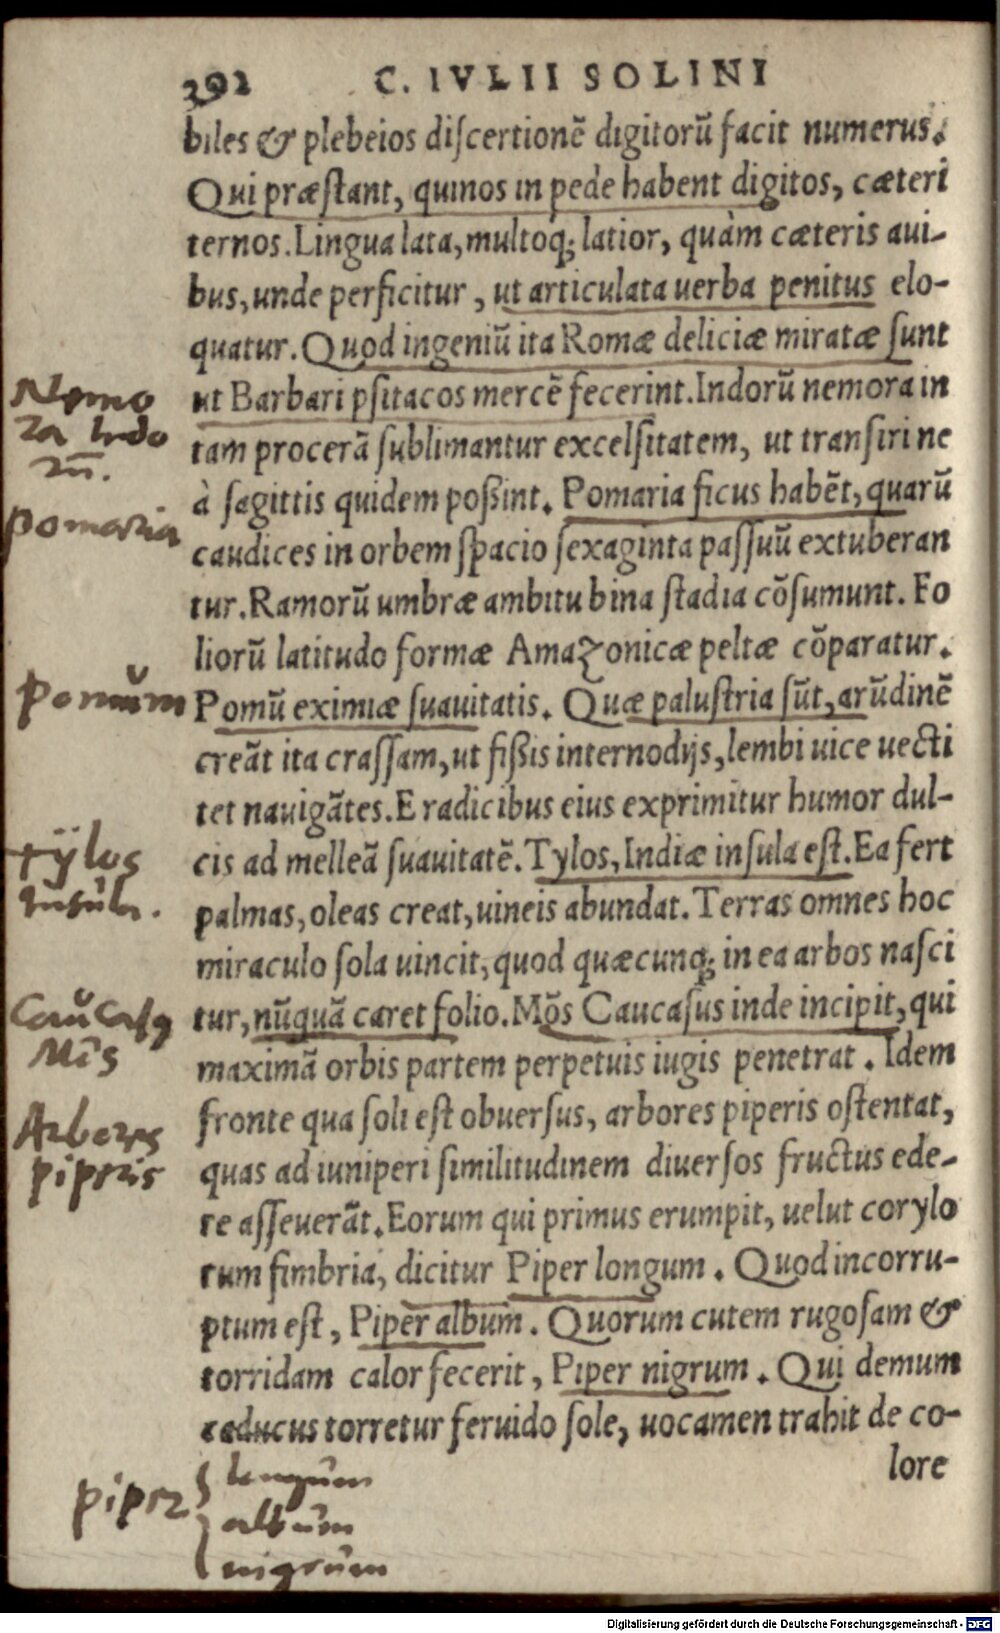 292 C. IVLII SOLINI
biles & plebeios discertionẽ digitorũ facit numerus.
Qui præstant, quinos in pede habent digitos, cæteri
ternos. Lingua lata, multoq; latior, quàm cæteris aui-
bus, unde perficitur, ut articulata uerba penitus elo-
quatur. Quod ingeniũ ita Romæ deliciæ miratæ sunt
ut Barbari psitacos mercẽ fecerint. Indorũ nemora in
tam procerã sublimantur excelsitatem, ut transiri ne
à sagittis quidem poßint. Pomaria ficus habẽt, quarũ
caudices in orbem spacio sexaginta passuũ extuberan
tur. Ramorũ umbræ ambitu bina stadia cõsumunt. Fo
liorũ latitudo formæ Amazonicæ peltæ cõparatur.
Pomũ eximiæ suauitatis. Quæ palustria sũt, arũdinẽ
creãt ita crassam, ut fißis internodijs, lembi uice uecti
tet nauigãtes. E radicibus eius exprimitur humor dul-
cis ad melleã suauitatẽ. Tylos, Indiæ insula est. Ea fert
palmas, oleas creat, uineis abundat. Terras omnes hoc
miraculo sola uincit, quod quæcunq; in ea arbos nasci
tur, nũquã caret folio. Mõs Caucasus inde incipit, qui
maximã orbis partem perpetuis iugis penetrat. Idem
fronte qua soli est obuersus, arbores piperis ostentat,
quas ad iuniperi similitudinem diuersos fructus ede-
re asseuerãt. Eorum qui primus erumpit, uelut corylo
rum fimbria, dicitur Piper longum. Quod incorru-
ptum est, Piper album. Quorum cutem rugosam &
torridam calor fecerit, Piper nigrum. Qui demum
caducus torretur feruido sole, uocamen trahit de co-
lore
Nemo
ra Indo
rũ.
pomaria
pomum
Tÿlos
Insula.
Caucasq
Mõs
Arbores
piperis
piper
longum
album
nigrum
Digitalisierung gefördert durch die Deutsche Forschungsgemeinschaft - DFG